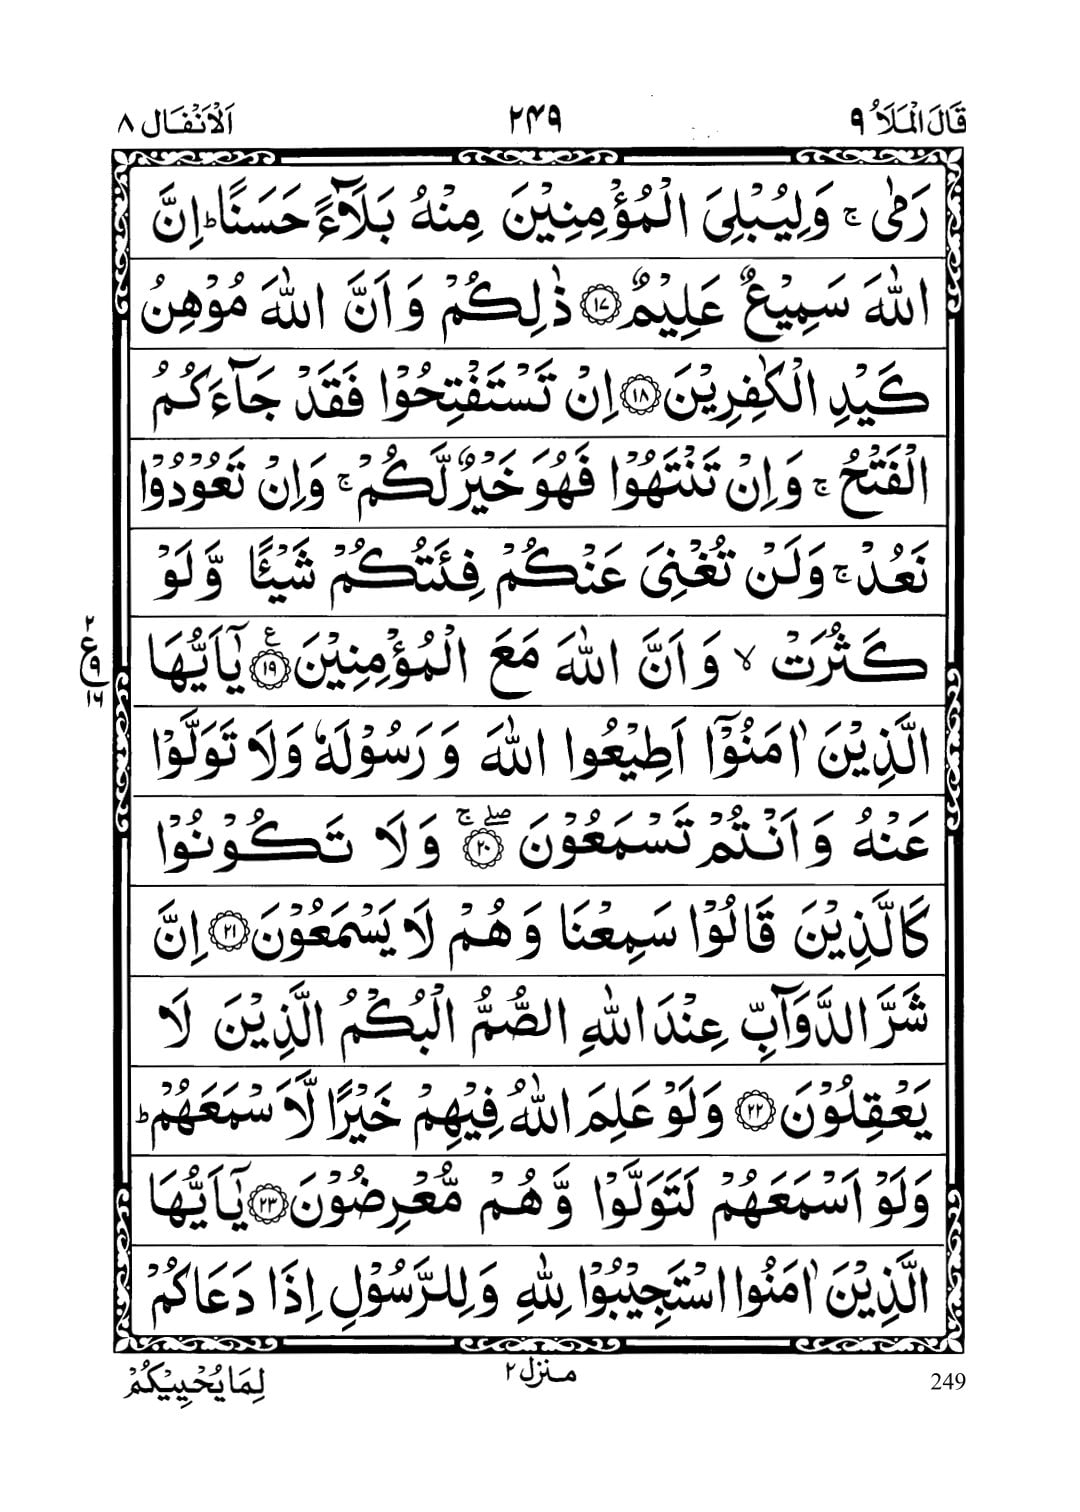 قَالَ الْمَلَاُ ۹
۲۴۹
اَلْاَنْفَال ۸
رَمٰى ۚ وَلِيُبْلِىَ الْمُؤْمِنِيْنَ مِنْهُ بَلَآءً حَسَنًا ؕ اِنَّ
اللّٰهَ سَمِيْعٌ عَلِيْمٌ ﴿۱۷﴾ ذٰلِكُمْ وَاَنَّ اللّٰهَ مُوْهِنُ
كَيْدِ الْكٰفِرِيْنَ ﴿۱۸﴾ اِنْ تَسْتَفْتِحُوْا فَقَدْ جَآءَكُمُ
الْفَتْحُ ۚ وَاِنْ تَنْتَهُوْا فَهُوَ خَيْرٌ لَّكُمْ ۚ وَاِنْ تَعُوْدُوْا
نَعُدْ ۚ وَلَنْ تُغْنِىَ عَنْكُمْ فِئَتُكُمْ شَيْـًٔا وَّلَوْ
كَثُرَتْ ۙ وَاَنَّ اللّٰهَ مَعَ الْمُؤْمِنِيْنَ ﴿۱۹﴾ ع يٰۤاَيُّهَا
۲ ع ۹ ۱۶
الَّذِيْنَ اٰمَنُوْۤا اَطِيْعُوا اللّٰهَ وَرَسُوْلَهٗ وَلَا تَوَلَّوْا
عَنْهُ وَاَنْتُمْ تَسْمَعُوْنَ ﴿۲۰﴾ ۖۚ وَلَا تَكُوْنُوْا
كَالَّذِيْنَ قَالُوْا سَمِعْنَا وَهُمْ لَا يَسْمَعُوْنَ ﴿۲۱﴾ اِنَّ
شَرَّ الدَّوَآبِّ عِنْدَ اللّٰهِ الصُّمُّ الْبُكْمُ الَّذِيْنَ لَا
يَعْقِلُوْنَ ﴿۲۲﴾ وَلَوْ عَلِمَ اللّٰهُ فِيْهِمْ خَيْرًا لَّاَسْمَعَهُمْ ؕ
وَلَوْ اَسْمَعَهُمْ لَتَوَلَّوْا وَّهُمْ مُّعْرِضُوْنَ ﴿۲۳﴾ يٰۤاَيُّهَا
الَّذِيْنَ اٰمَنُوا اسْتَجِيْبُوْا لِلّٰهِ وَلِلرَّسُوْلِ اِذَا دَعَاكُمْ
249
منزل ۲
لِمَا يُحْيِيْكُمْ